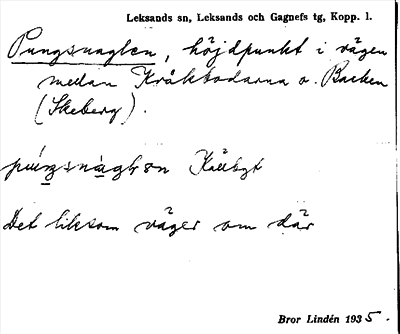 Leksands sn, Leksands och Gagnefs tg, Kopp. l.
Pungsnaglen, höjdpunkt i vägen
medan Kråkbodarna o. Backen
(Skeberg).
Källbyt
Det liksom väger om där
Bror Lindén 1935.